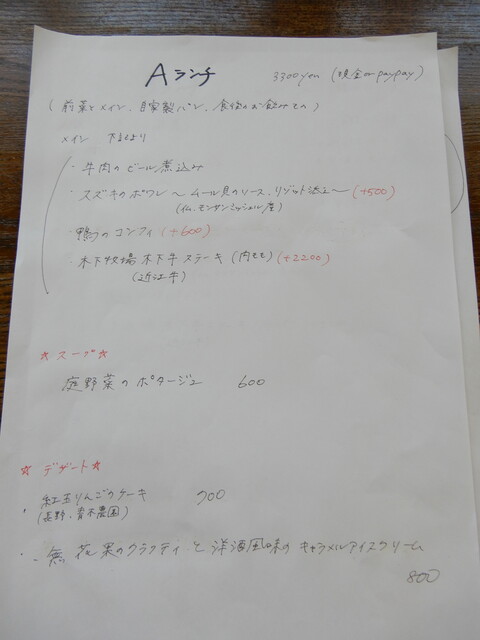 Aランチ 3300yen (現金or paypay)
(前菜とメイン、自家製パン、食後のお飲みもの)
メイン 下記より
・牛肉のビール煮込み
・スズキのポワレ～ムール貝のソース、リゾット添え～(+500)
(仏、モンサンミッシェル産)
・鴨のコンフィ(+600)
・木下牧場 木下牛ステーキ(内もも)(+2200)
(近江牛)
☆スープ☆
庭野菜のポタージュ 600
☆デザート☆
・紅玉りんごのケーキ 700
(長野、青木農園)
・無花果のクラフティと洋酒風味のキャラメルアイスクリーム
800